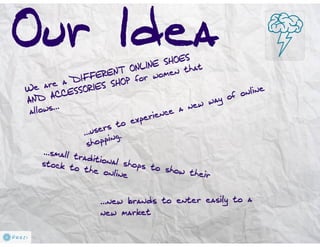 Our Idea
We are a DIFFERENT ONLINE SHOES
AND ACCESSORIES SHOP for women that
allows...
...users to experience a new way of online
shopping.
...small traditional shops to show their
stock to the online
...new brands to enter easily to a
new market
Prezi